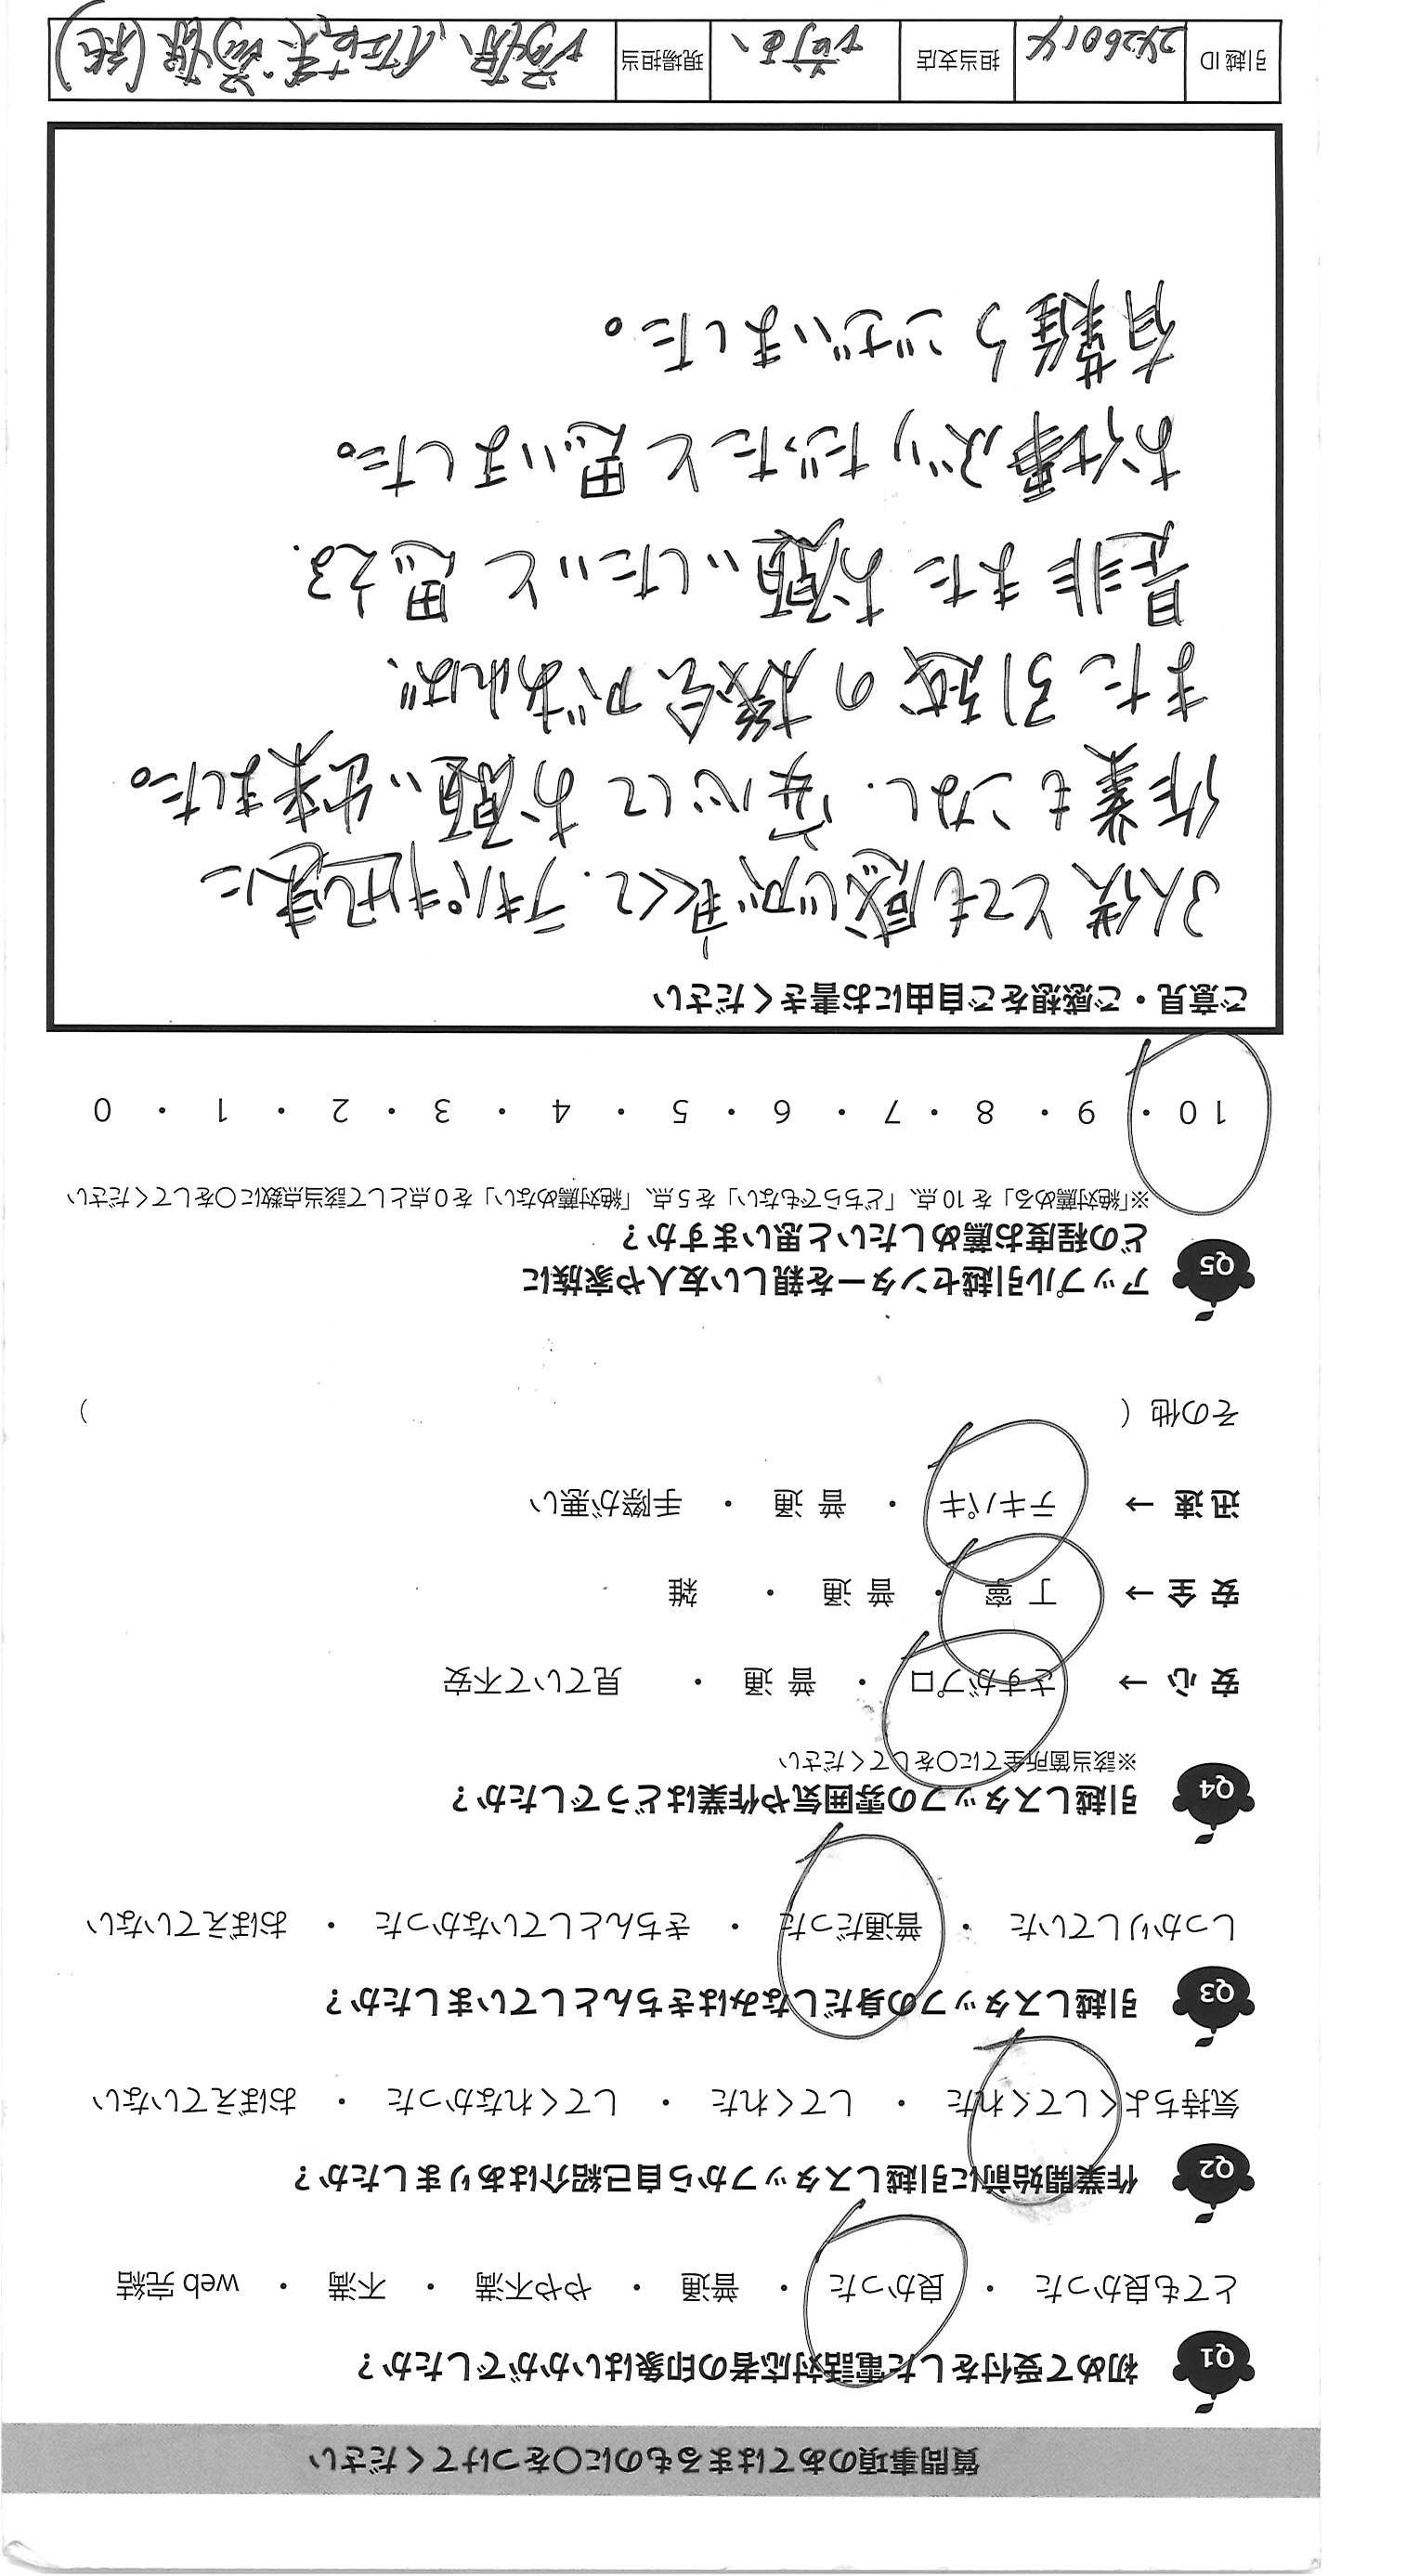 質問事項のあてはまるものに〇をつけてください
Q1 初めて受付をした電話対応者の印象はいかがでしたか？
とても良かった ・ 良かった ・ 普通 ・ やや不満 ・ 不満 ・ web 完結
Q2 作業開始前に引越しスタッフから自己紹介はありましたか？
気持ちよくしてくれた ・ してくれた ・ してくれなかった ・ おぼえていない
Q3 引越しスタッフの身だしなみはきちんとしていましたか？
しっかりしていた ・ 普通だった ・ きちんとしていなかった ・ おぼえていない
Q4 引越しスタッフの雰囲気や作業はどうでしたか？
※該当箇所全てに〇をしてください
安心 → さすがプロ ・ 普通 ・ 見ていて不安
安全 → 丁寧 ・ 普通 ・ 雑
迅速 → テキパキ ・ 普通 ・ 手際が悪い
その他（ ）
Q5 アップル引越センターを親しい友人や家族に
どの程度お薦めしたいと思いますか？
※「絶対薦める」を 10 点、「どちらでもない」を 5 点、「絶対薦めない」を 0 点として該当点数に〇をしてください
10 ・ 9 ・ 8 ・ 7 ・ 6 ・ 5 ・ 4 ・ 3 ・ 2 ・ 1 ・ 0
ご意見・ご感想をご自由にお書きください
3人様とても感じが良くて、テキパキ迅速に
作業もこなし、安心してお願い出来ました。
また引越の機会があれば、
是非またお願いしたいと思える
お仕事ぶりだったと思いました。
有難うございました。
引越 ID 2426014 担当支店 現場担当